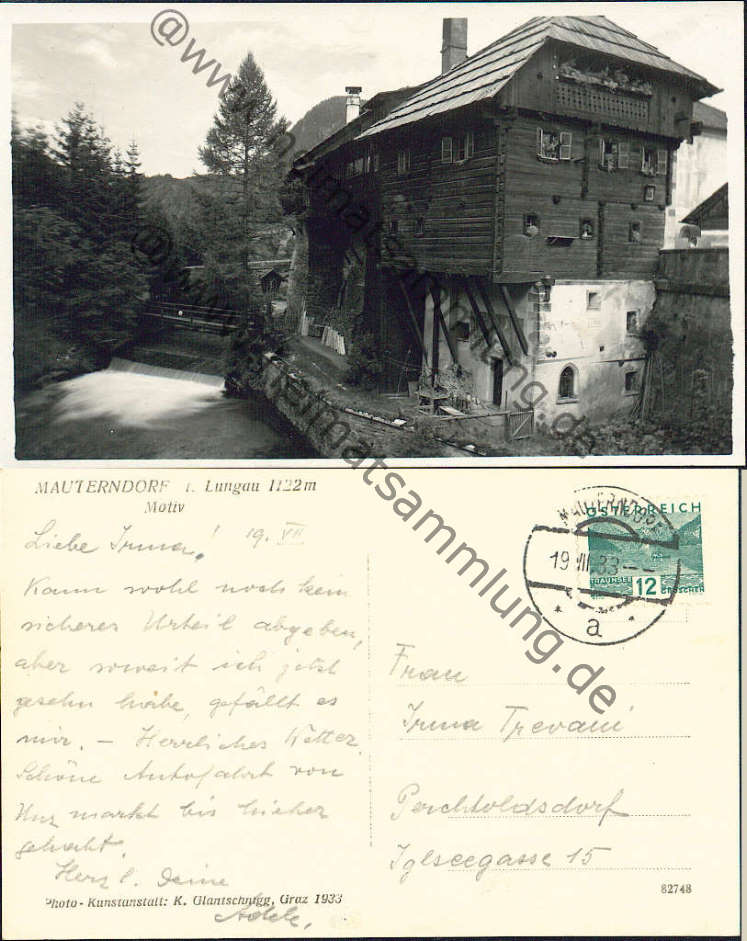 @www.heimatsammlung.de
MAUTERNDORF i. Lungau 1122m
Motiv
Liebe Irma! 19. VII
Kann wohl noch kein
sicheres Urteil abgeben,
aber soweit ich jetzt
gesehn habe, gefällt es
mir. – Herrliches Wetter
Schöne Autofahrt von
Unzmarkt bis hieher
gehabt.
Herzl. Deine
Adele.
Photo-Kunstanstalt: K. Glantschnigg, Graz 1933
MAUTERNDORF
19.VII.33
a
ÖSTERREICH
TRAUNSEE 12 GROSCHEN
Frau
Irma Trevani
Perchtoldsdorf
Iglseegasse 15
82748
@www.heimatsammlung.de